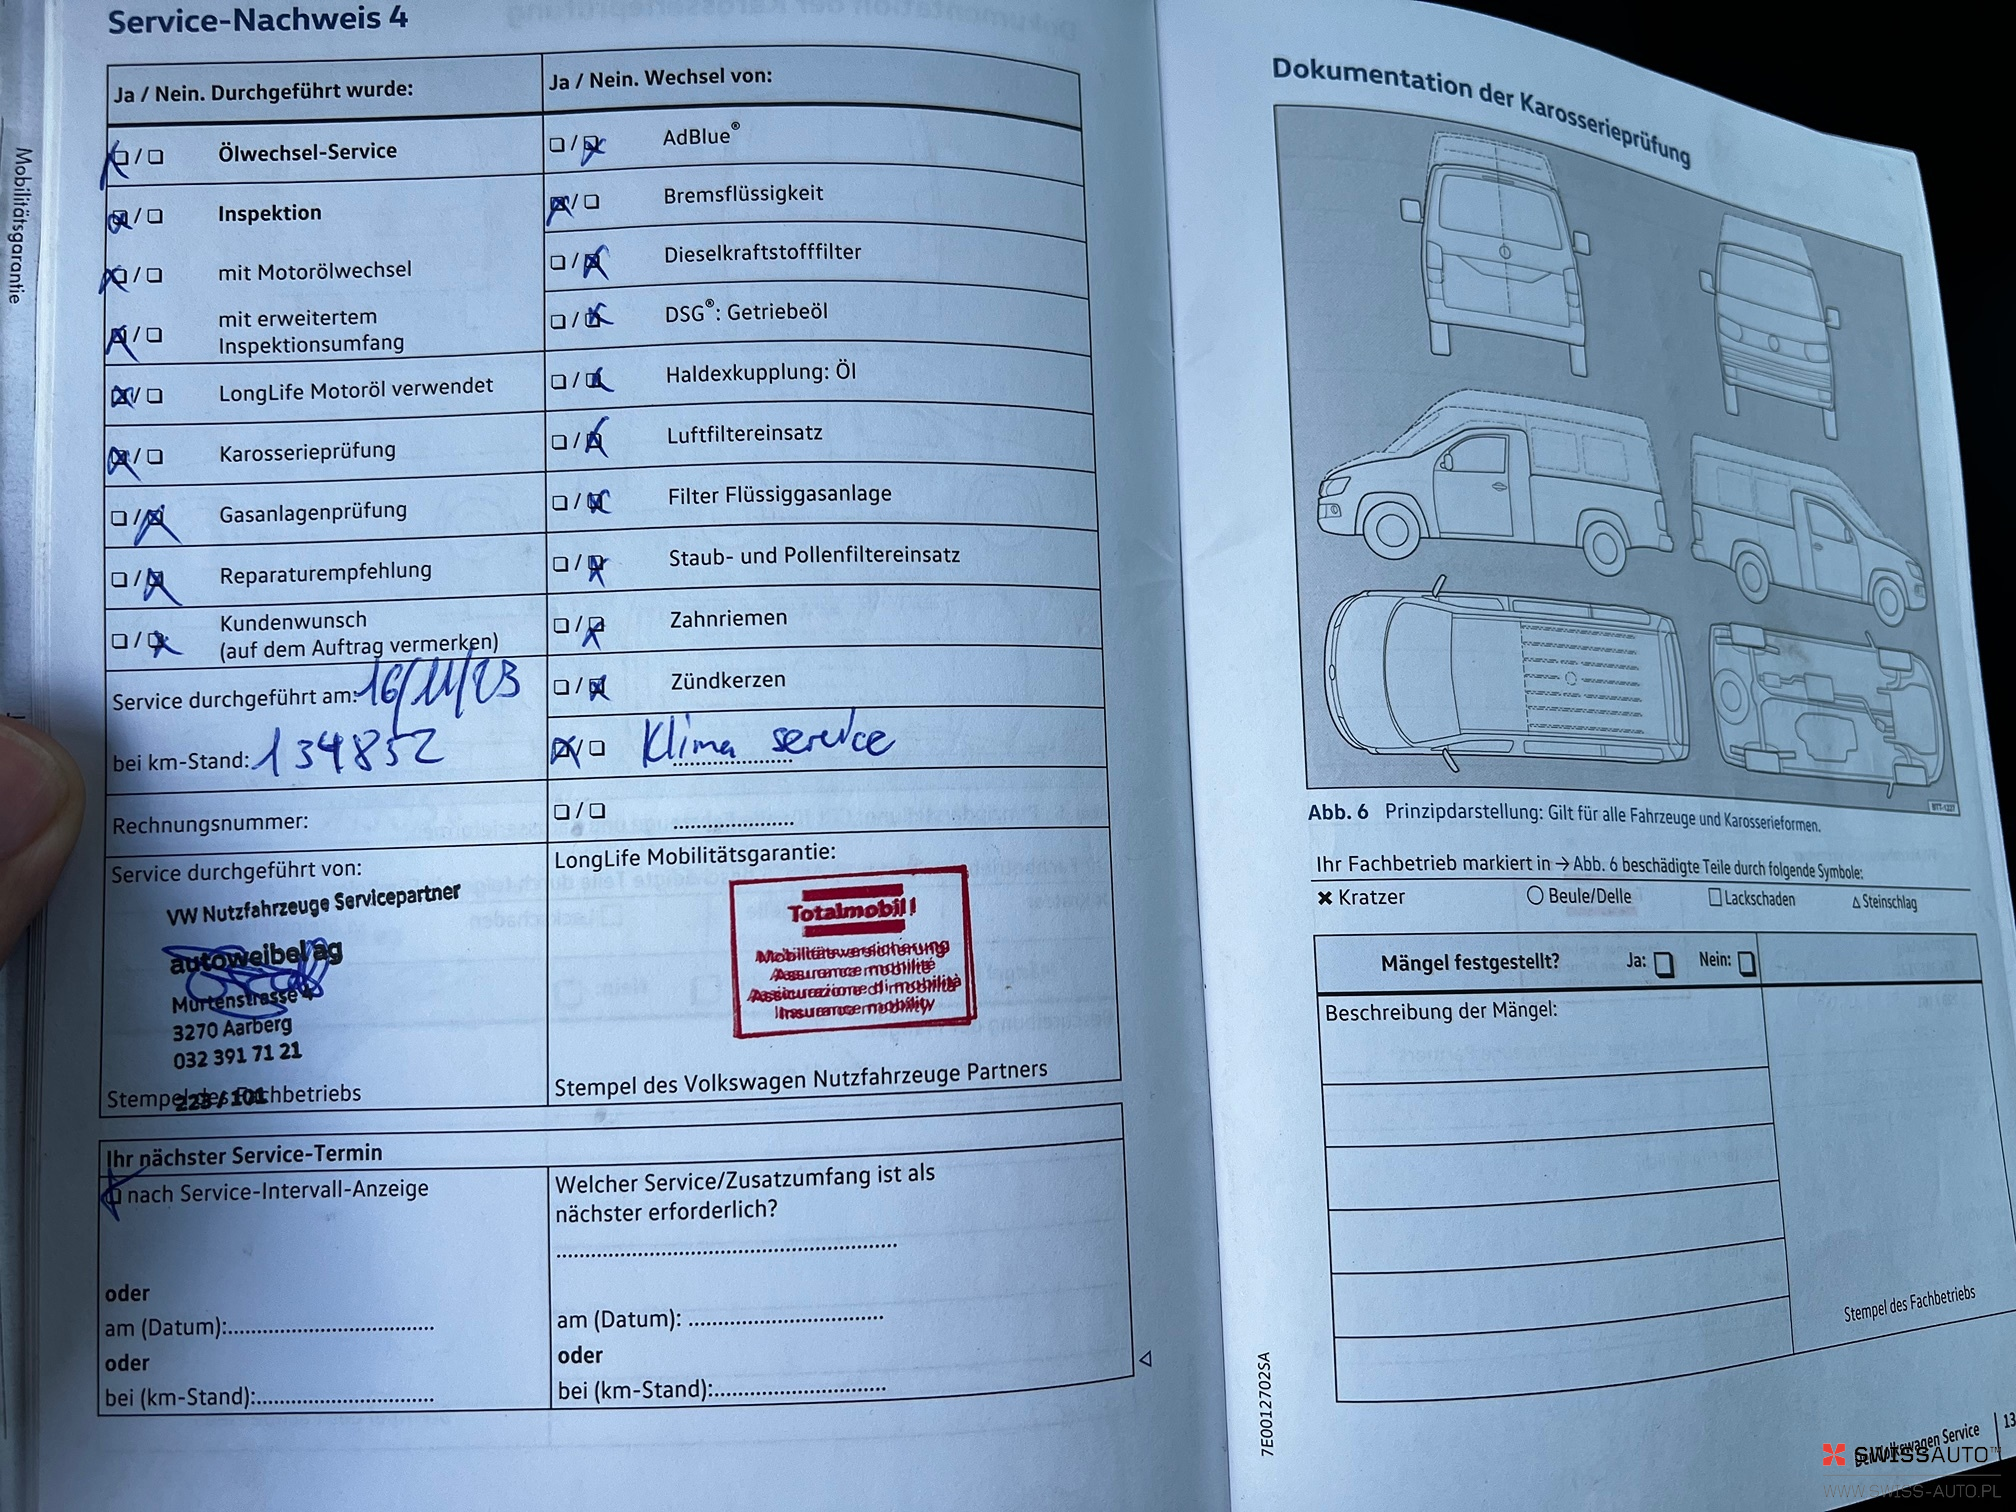 Mobilitätsgarantie
Service-Nachweis 4
Ja / Nein. Durchgeführt wurde:
Ja / Nein. Wechsel von:
Ölwechsel-Service
AdBlue®
Inspektion
Bremsflüssigkeit
mit Motorölwechsel
Dieselkraftstofffilter
mit erweitertem
Inspektionsumfang
DSG®: Getriebeöl
LongLife Motoröl verwendet
Haldexkupplung: Öl
Karosserieprüfung
Luftfiltereinsatz
Gasanlagenprüfung
Filter Flüssiggasanlage
Reparaturempfehlung
Staub- und Pollenfiltereinsatz
Kundenwunsch
(auf dem Auftrag vermerken)
Zahnriemen
Service durchgeführt am: 16/11/23
Zündkerzen
bei km-Stand: 134852
Klima service
Rechnungsnummer:
Service durchgeführt von:
VW Nutzfahrzeuge Servicepartner
autoweibel ag
Murtenstrasse 4
3270 Aarberg
032 391 71 21
223 / 101
Stempel des Fachbetriebs
LongLife Mobilitätsgarantie:
Totalmobil!
Mobilitätsversicherung
Assurance mobilité
Assicurazione di mobilità
Insurance mobility
Stempel des Volkswagen Nutzfahrzeuge Partners
Ihr nächster Service-Termin
nach Service-Intervall-Anzeige
oder
am (Datum):
oder
bei (km-Stand):
Welcher Service/Zusatzumfang ist als
nächster erforderlich?
am (Datum):
oder
bei (km-Stand):
Dokumentation der Karosserieprüfung
BTT-1227
Abb. 6 Prinzipdarstellung: Gilt für alle Fahrzeuge und Karosserieformen.
Ihr Fachbetrieb markiert in → Abb. 6 beschädigte Teile durch folgende Symbole:
✖ Kratzer ○ Beule/Delle □ Lackschaden △ Steinschlag
Mängel festgestellt? Ja: Nein:
Beschreibung der Mängel:
Stempel des Fachbetriebs
7E0012702SA
Der Volkswagen Service 13
SWISSAUTO™
WWW.SWISS-AUTO.PL